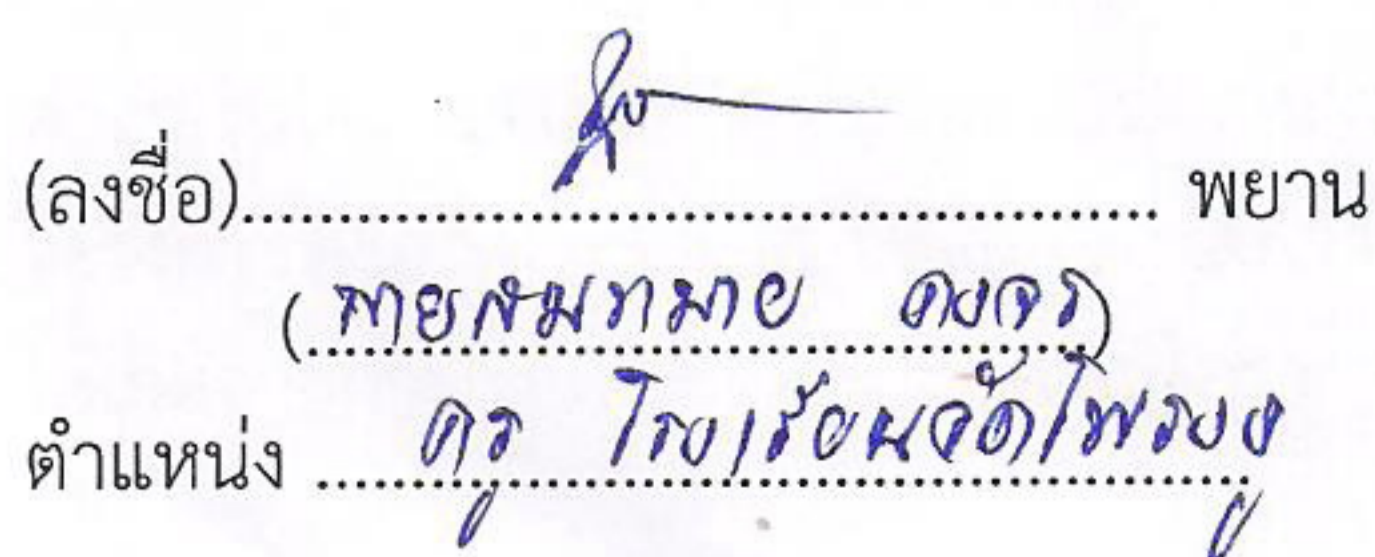 (ลงชื่อ)........................................ พยาน
(นายสมหมาย คงจร)
ตำแหน่ง ครู โรงเรียนวัด